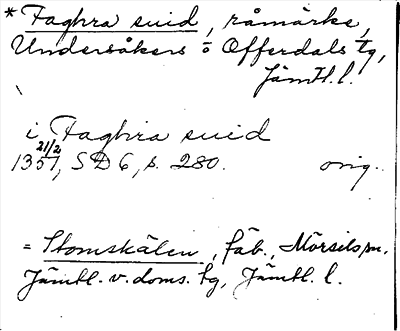 * Faghra suid, råmärke,
Undersåkers o Offerdals tg,
Jämtl. l.
i Faghra suid
21/2
1357, SD 6, s. 280. orig.
= Stomskälen, fäb., Mörsils sn.
Jämtl. v. doms. tg, Jämtl. l.